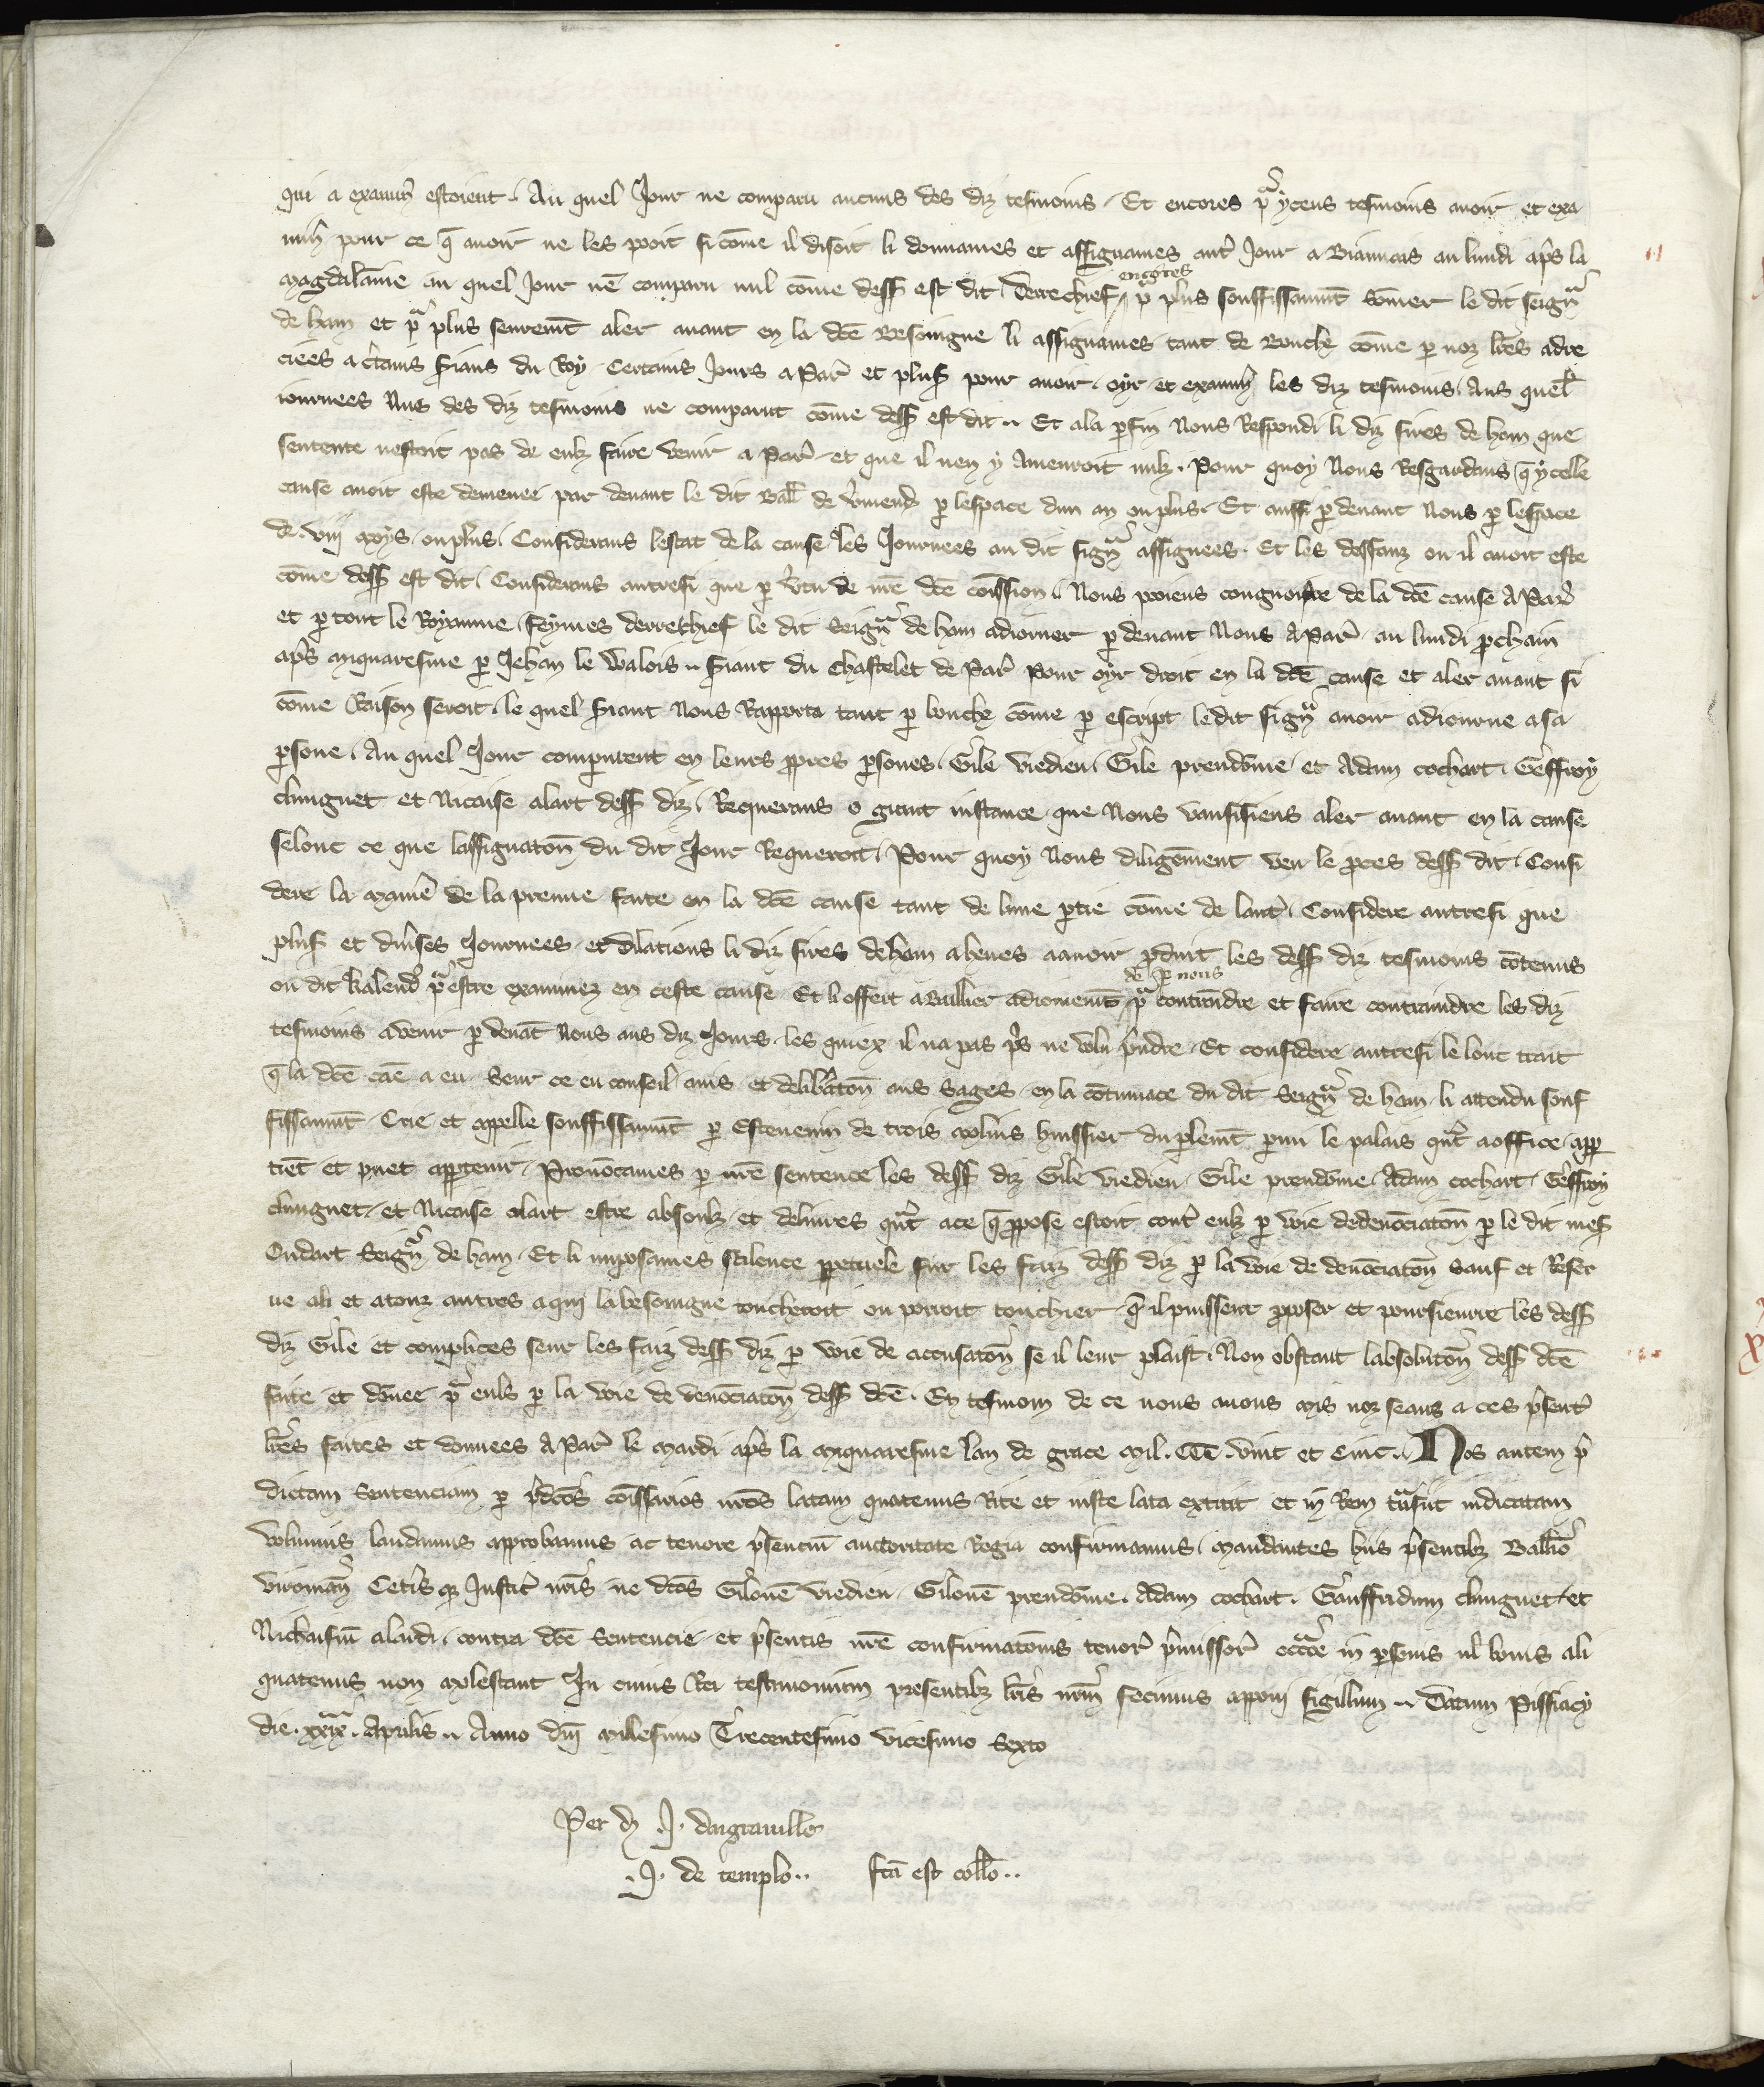 qui a examin̄ estoient. Au quel Jour ne comparu aucuns des diz tesmoins. Et encores pͬ yceus tesmoins avoir et exa
min̄ pour ce q̄ avoir ne les pooit si cōme il disoit li donnames et assignames autͬ Jour a Biauvais au lundi apͬs la
Magdalainne au quel Jour nē comparu nul cōme dess est dit. Derrechief encores pͬ plus souffissaument sōmer le dit seignͬ
de ham et pͬ plus seuremt̄ aler avant en la dc̄e Besoingne li assignames tant de Bouche cōme par noz lr̄es adre
ciees a ct̄ains s̄ians du Roy. Certains Jours a Par̄ et plus̄ pour avoir. oyr et examin̄ les diz tesmoins. Aus quel̄
iournees Nus des diz tesmoins ne comparut cōme dess̄ est dit. Et a la ꝑfin Nous Respondi li diz sires de ham que
sentente nestoit pas de eulz faire venir a Par̄ et que il nen y amenroit nulz. Pour quoy Nous Resgardans q̄ ycelle
cause avoit este demenee par devant le dit Baill̄ de v̄mend̄ ꝑ lespace dun an ou plus. Et aussi ꝑ devant Nous ꝑ lespace
de. viij moys. ou plus. Considerans lestat de la cause les Journees au dit signͬ assignees. Et les deffauz ou il avoit este
cōme dess̄ est dit. Considerans autresi que ꝑ v̄tu de nr̄e dc̄e cōission. Nous poiens congnoistre de la dc̄e cause A Par̄
et ꝑ tout le Royaume. feymes derrechief le dit Seignͬ de ham adiorner ꝑ devant Nous A Par̄ au lundi ꝓchain
apͬs miquaresme ꝑ Jehan le Walois. s̄iant du Chastelet de Par̄ pour oyr droit en la dc̄e cause et aler avant si
cōme Raison seroit. le quel s̄iant Nous Rapporta tant ꝑ bouche cōme ꝑ escript le dit signͬ avoir adiourne a sa
ꝑsone. Au quel Jour comparurent en leurs ꝓpres ꝑsones. Gile Viedieu. Gile preudōme et Adam cochart. Geffroy
clunguet et Nicaise alart dess̄ diz. Requerans o grant instance que Nous vausissiens aler avant en la cause
selonc ce que lassignatōn du dit Jour Requeroit. Pour quoy Nous diligēment veu le ꝓces dess̄ dit. Consi
dere la Maniē de la preuve faite en la dc̄e cause tant de lune ꝑtie cōme de lautͬ. Considere autresi que
plus̄ et div̄ses Journees. et dilations li diz sires de ham a heues a avoir ꝓduit les dess̄ diz tesmoins cōtenus
ou dit kalend̄ pͬ estre examinez en ceste cause. Et li offert a Baillier adiornemt̄ de ꝑ nous pͬ contraindre et faire contraindre les diz
tesmoins a venir ꝑ devāt Nous aus diz Jours. les quiex il na pas pͬs ne volu pͬndre. Et considere autresi le lonc trait
q̄ la dc̄e cāe a eu. Seur ce eu conseil avis et delib̄atōn aus Sages. en la cōtumace du dit Seignͬ de ham. li attendu souf
fissaumt̄. Crie et appelle souffissaumt̄ ꝑ Estevenin de trois molins huissier du ꝑlemt̄ ꝑmi le palais qn̄t a office apꝑ
tiet et puet apꝑtenir. Pronōcames ꝑ nr̄e sentence les dess̄ diz Gile Viedieu. Gile preudōme. Adam cochart. Geffroy
clunguet. et Nicaise alart estre absoulz et delivres qn̄t a ce q̄ ꝓpose estoit contͬ eulz ꝑ voie de denōciatōn ꝑ le dit mes̄
Oudart Seignͬ de ham. Et li imposames scilence ꝑpetuele sur les faiz dess̄ diz ꝑ la voie de denōciatōn Sauf et Reser
ve a li et a touz autres a qui la besoingne toucheroit ou porroit touchier. q̄ il puissent ꝓposer et poursievrre les dess̄
diz Gile et complices seur les faiz dess̄ diz ꝑ voie de accusatōn se il leur plaist. Non obstant labsolutōn dess̄ dc̄e
faite et dōnee pͬ euls ꝑ la voie de denōciatōn dess̄ dc̄e. En tesmoin de ce nous avons mis noz seaus a ces pͬsentͬ
lr̄es faites et donnees A Par̄ le Mardi apͬs la Miquaresme lan de grace Mil. CCC. vint et Cinc. Nos autem pͬ
dictam Sentenciam ꝑ pͬdc̄os cōissarios nr̄os latam quatenus Rite et iuste lata extitit et in Rem tn̄sivit iudicatam
Volumus laudamus approbamus ac tenore pͬsencium auctoritate Regia confirmamus. Mandantes hiis pͬsentibꝫ Ballīo
viromān Cetīs qꝫ Justic̄ nr̄is. ne dc̄os Gilonē Viedieu. Gilonē preudōme. Adam cochart. Gauffridum clunguet et
Nichasiū alardi. contra dc̄e Sentencie. et pͬsentis nr̄e confirmatōnis tenor̄ pͬmissor̄ occ̄oe in ꝑsonis vl̄ bonis ali
quatenus non molestant. In cuius Rei testimonium presentibꝫ lr̄is nr̄m fecimus apponi sigillum. Datum Pissiacy
die. xxixͣ. Aprilis. Anno dn̄i Millesimo Trecentesimo vicesimo Sexto
Per d. J. dargeuille
.J. de templo.. fc̄a est coll̄o..